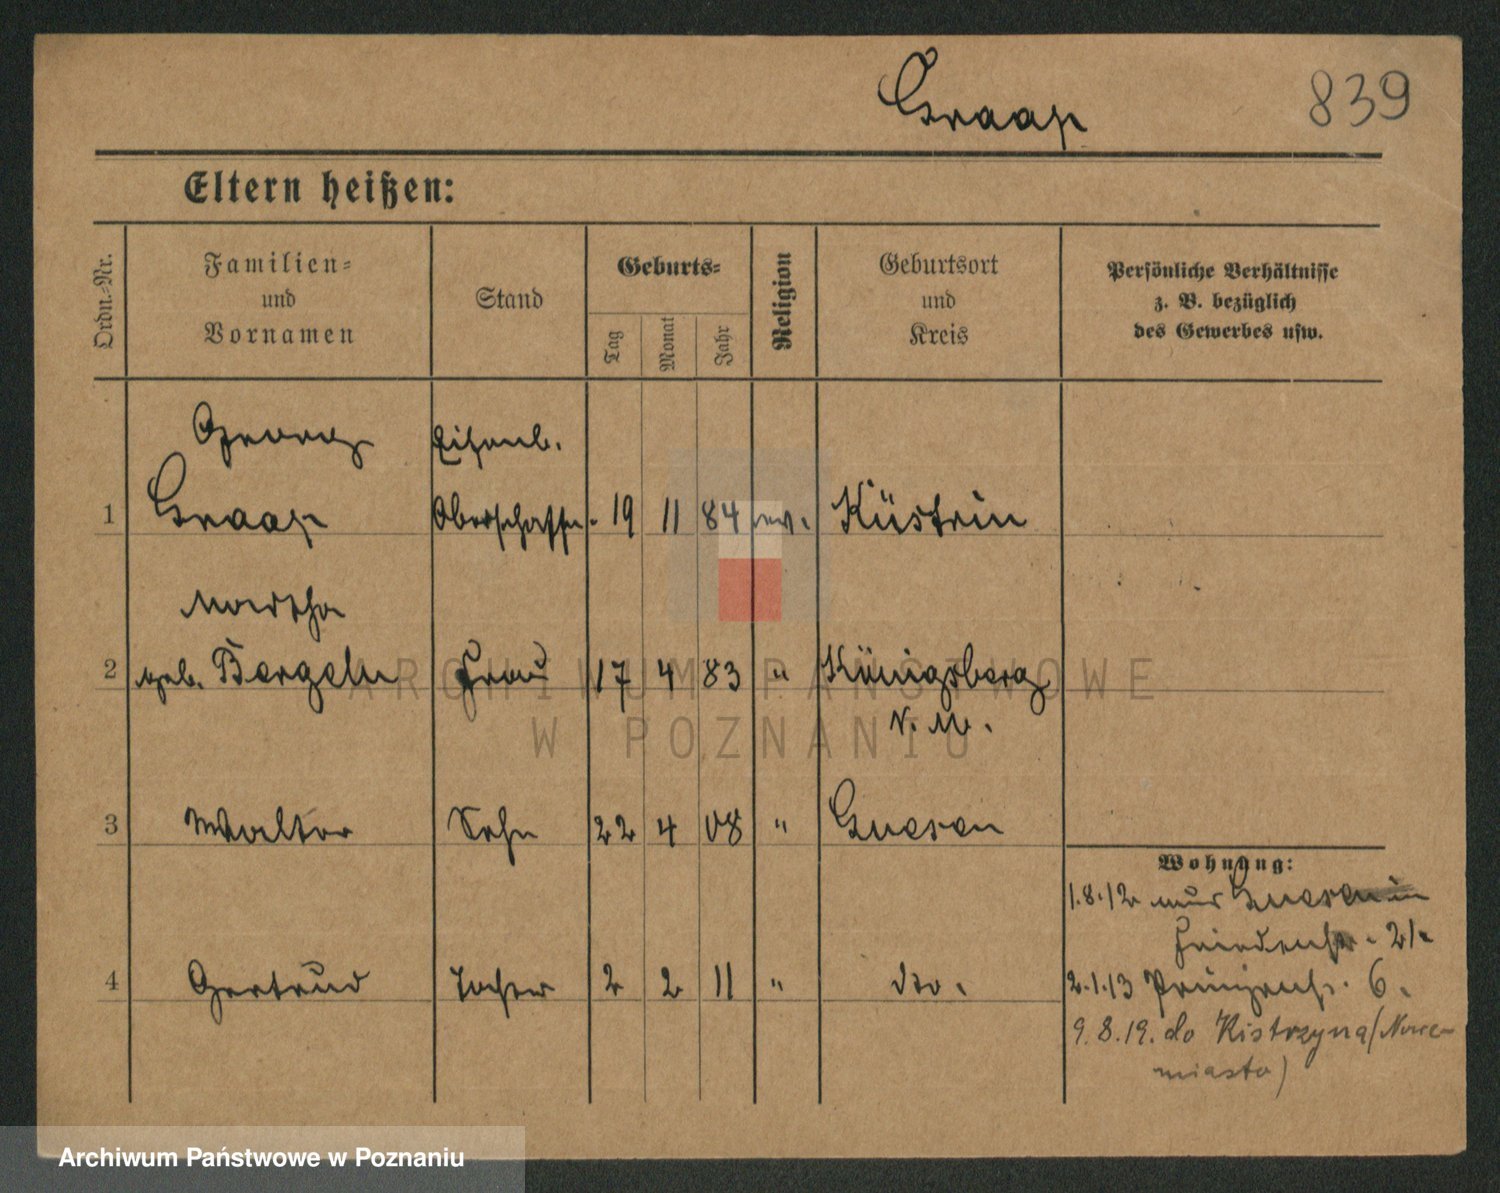 Graap
839
Eltern heißen:
Ordn.-Nr.
Familien-
und
Vornamen
Stand
Geburts-
Tag
Monat
Jahr
Religion
Geburtsort
und
Kreis
Persönliche Verhältnisse
z. B. bezüglich
des Gewerbes usw.
Georg Eisenb.
1 Graap Oberschaffn. 19 11 84 ev. Küstrin
Martha
2 geb. Bergeln Frau 17 4 83 " Königsberg
N. M.
3 Walter Sohn 22 4 08 " Gnesen
Wohnung:
1.8.12 aus Gnesen in
Friedenstr. 21.
4 Gertrud Tochter 2 2 11 " do.
2.1.13 Prinzenstr. 6.
9.8.19. do Kistrzyna (Nowe-
miasto)
ARCHIWUM PAŃSTWOWE
W POZNANIU
Archiwum Państwowe w Poznaniu